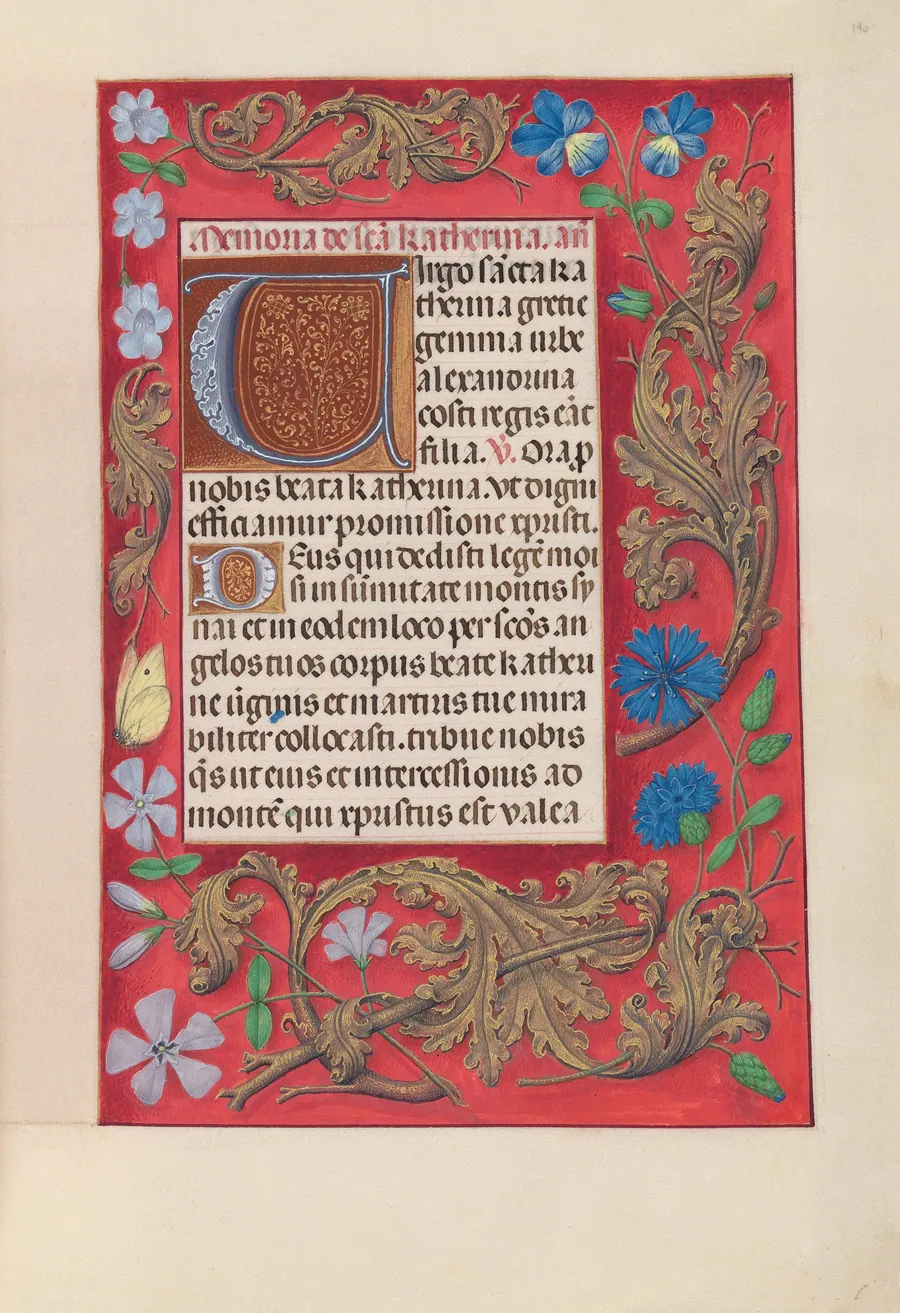 Memoria de scā Katherina. añ
Virgo sācta ka
therina gretie
gemma urbe
alexandrina
costi regis eāt
filia. ℣. Ora ꝓ
nobis beata katherina. Vt digni
efficiamur promissione xpristi.
Deus qui dedisti legē moi
si in sūmitate montis sy
nai et in eodem loco per scōs an
gelos tuos corpus beate katheri
ne ūginis et martiris tue mira
biliter collocasti. tribue nobis
q̄s ut eius et intercessionis ad
montē qui xpristus est valea